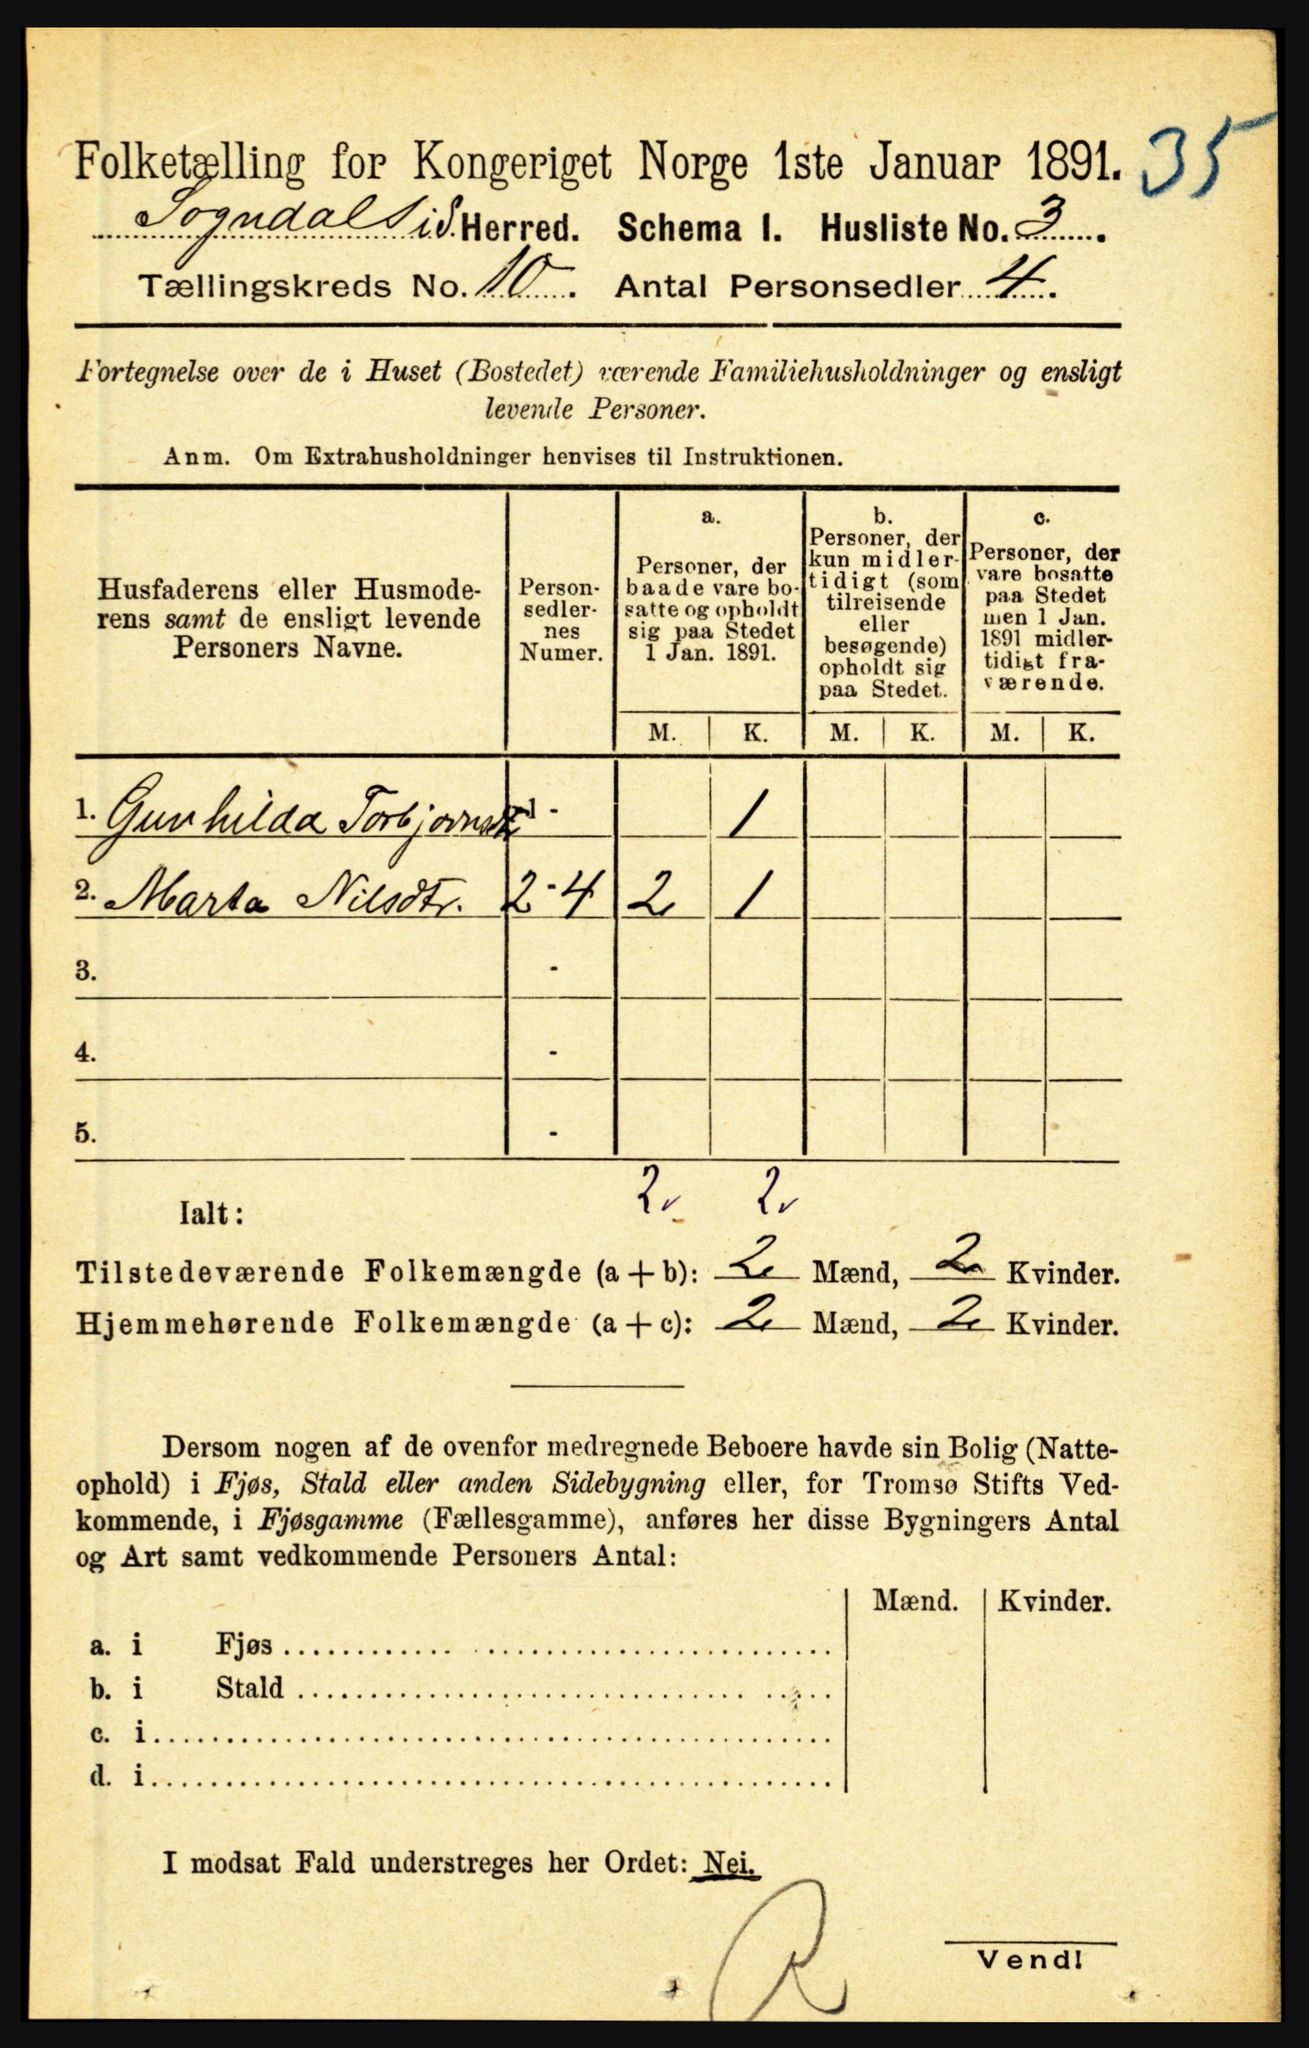 35
Folketælling for Kongeriget Norge 1ste Januar 1891.
Sogndal i S. Herred. Schema I. Husliste No. 3.
Tællingskreds No. 10. Antal Personsedler 4.
Fortegnelse over de i Huset (Bostedet) værende Familiehusholdninger og ensligt
levende Personer.
Anm. Om Extrahusholdninger henvises til Instruktionen.
Husfaderens eller Husmode-
rens samt de ensligt levende
Personers Navne.
Person-
sedler-
nes
Numer.
a.
Personer, der
baade vare bo-
satte og opholdt
sig paa Stedet
1 Jan. 1891.
b.
Personer, der
kun midler-
tidigt (som
tilreisende
eller
besøgende)
opholdt sig
paa Stedet.
c.
Personer, der
vare bosatte
paa Stedet
men 1 Jan.
1891 midler-
tidigt fra-
værende.
M. K. M. K. M. K.
1. Gunhilda Torbjornsdtr 1 - 1
2. Marta Nilsdtr. 2 - 4 2 1
3. -
4. -
5. -
Ialt: 2 2
Tilstedeværende Folkemængde (a + b): 2 Mænd, 2 Kvinder.
Hjemmehørende Folkemængde (a + c): 2 Mænd, 2 Kvinder.
Dersom nogen af de ovenfor medregnede Beboere havde sin Bolig (Natte-
ophold) i Fjøs, Stald eller anden Sidebygning eller, for Tromsø Stifts Ved-
kommende, i Fjøsgamme (Fællesgamme), anføres her disse Bygningers Antal
og Art samt vedkommende Personers Antal:
Mænd. Kvinder.
a. i Fjøs
b. i Stald
c. i
d. i
I modsat Fald understreges her Ordet: Nei.
R
Vend!